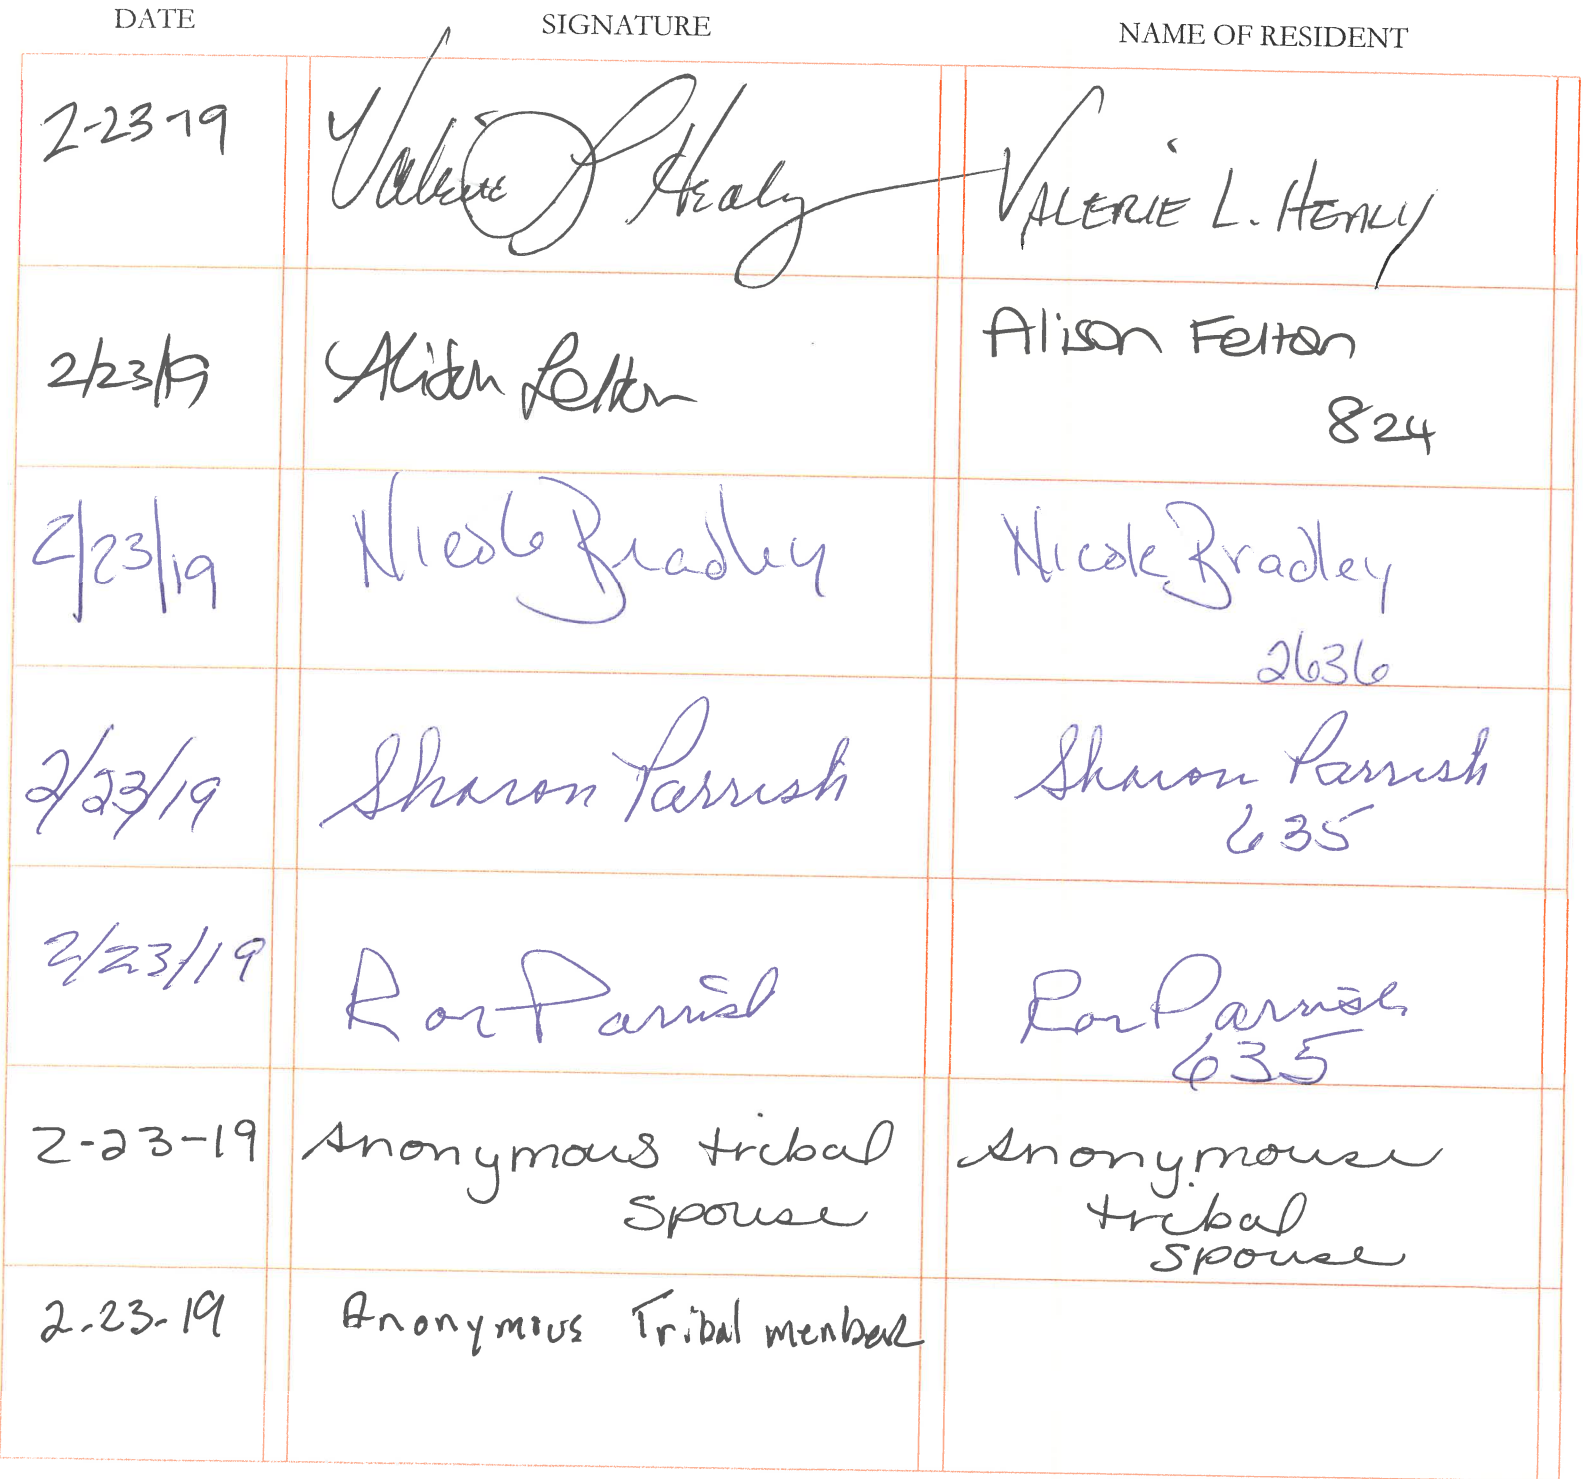 DATE SIGNATURE NAME OF RESIDENT
2-23-19 Valerie L Healy VALERIE L. HEALY
2/23/19 Alison Felton Alison Felton
824
2/23/19 Nicole Bradley Nicole Bradley
2636
2/23/19 Sharon Parrish Sharon Parrish
635
2/23/19 Ron Parrish Ron Parrish
635
2-23-19 Anonymous tribal Anonymouse
spouse tribal
spouse
2-23-19 Anonymous Tribal member